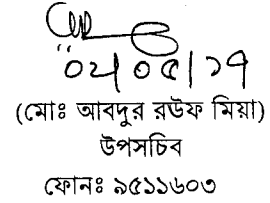 ০২/০৫/১৭
(মোঃ আবদুর রউফ মিয়া)
উপসচিব
ফোনঃ ৯৫১১৬০৩